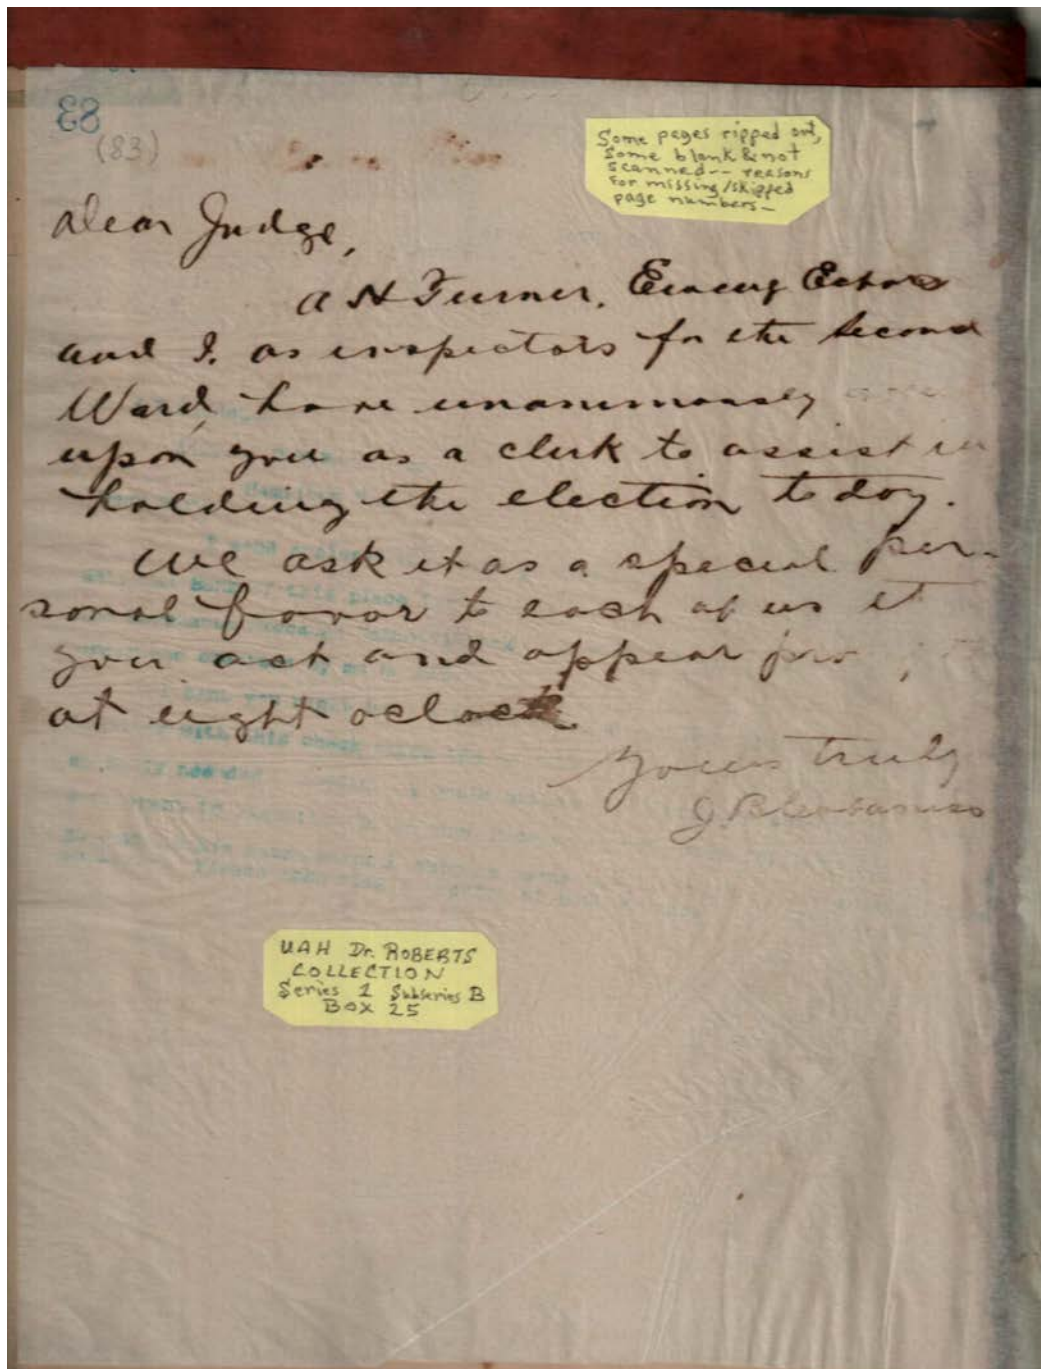 83
(83)
Some pages ripped out,
Some blank & not
scanned -- reasons
for missing/skipped
page numbers -
Dear Judge,
A H Turner, Echols
and I, as inspectors for the second
Ward, have unanimously
upon you as a clerk to assist in
holding the election today.
We ask it as a special per-
sonal favor to each of us
you act and appear
at eight oclock
Yours truly
UAH Dr. ROBERTS
COLLECTION
Series 1 Subseries B
BOX 25